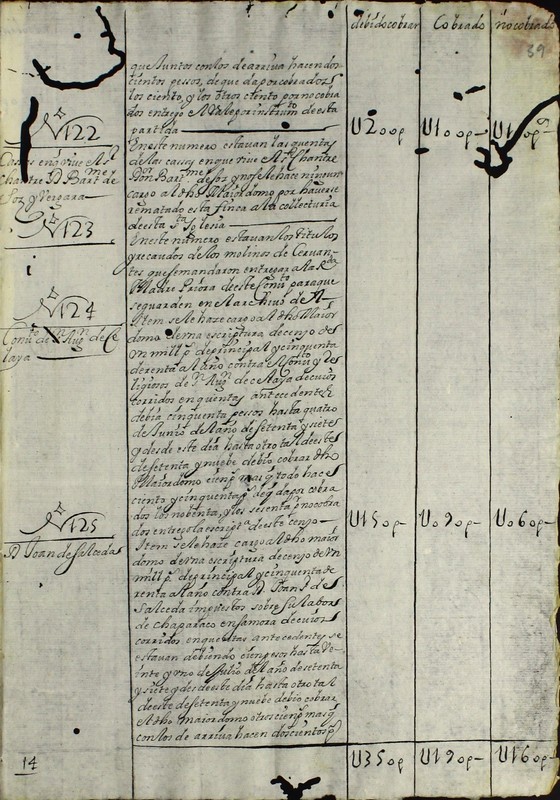 debido cobrar Cobrado no cobrado
39
que juntos con los de arriva hacen dos
cientos pessos, de que da por cobrados
los ciento, y los otros ciento por no cobra
dos entrego el Vale por instrumto de esta
partida
U200p U100p U100p
N122
Casas en q vive el Sr
Chantre D. Barme de
Soz y Vergara
En este numero estavan las quentas
de las cassas en que vive el Sr Chantre
Don Barme de Soz y no se hace ningun
cargo al dho Maiordomo por haverse
rematado esta finca a la collecturia
de esta Sta Yglesia
N123
En este numero estavan los titulos
y recaudos de los molinos de Cervan-
tes que se mandaron entregar a la Rda
Madre Priora de este Convto para que
se guarden en el archivo de el
N124
Convto de S. Augn de Ce
laya
Item se le haze cargo al dho Maior
domo de una escriptura de censo de
Un mill ps de principal y cinquenta
de renta al año contra el Convto y Re
ligiosos de Sn Augn de celaya de cuios
corridos en quentas antecedentes
debia cinquenta pessos hasta quatro
de Junio de el año de setenta y siete
y desde este dia hasta otro tal de este
de setenta y nuebe debio cobrar el dho
Maiordomo cien ps mas q todo hace
ciento y cinquenta ps de q da por cobra
dos los nobenta, y los sesenta ps no cobra
dos entrego la escripa de este censo
U150p U090p U060p
N125
D. Joan de Salceda
Item se le haze cargo al dho maior
domo de una escriptura de censo de Un
mill ps de principal y cinquenta de
renta al año contra D. Joan de
Salceda impuestos sobre su labor
de chaparaco en samora de cuios
corridos en quentas antecedentes se
estavan debiendo cien pesos hasta Ve-
inte y uno de Jullio de el año de setenta
y siete y desde este dia hasta otro tal
de este de setenta y nuebe debio cobrar
el dho maior domo otros cien ps mas q
con los de arriva hacen doscientos ps
14
U350p U190p U160p